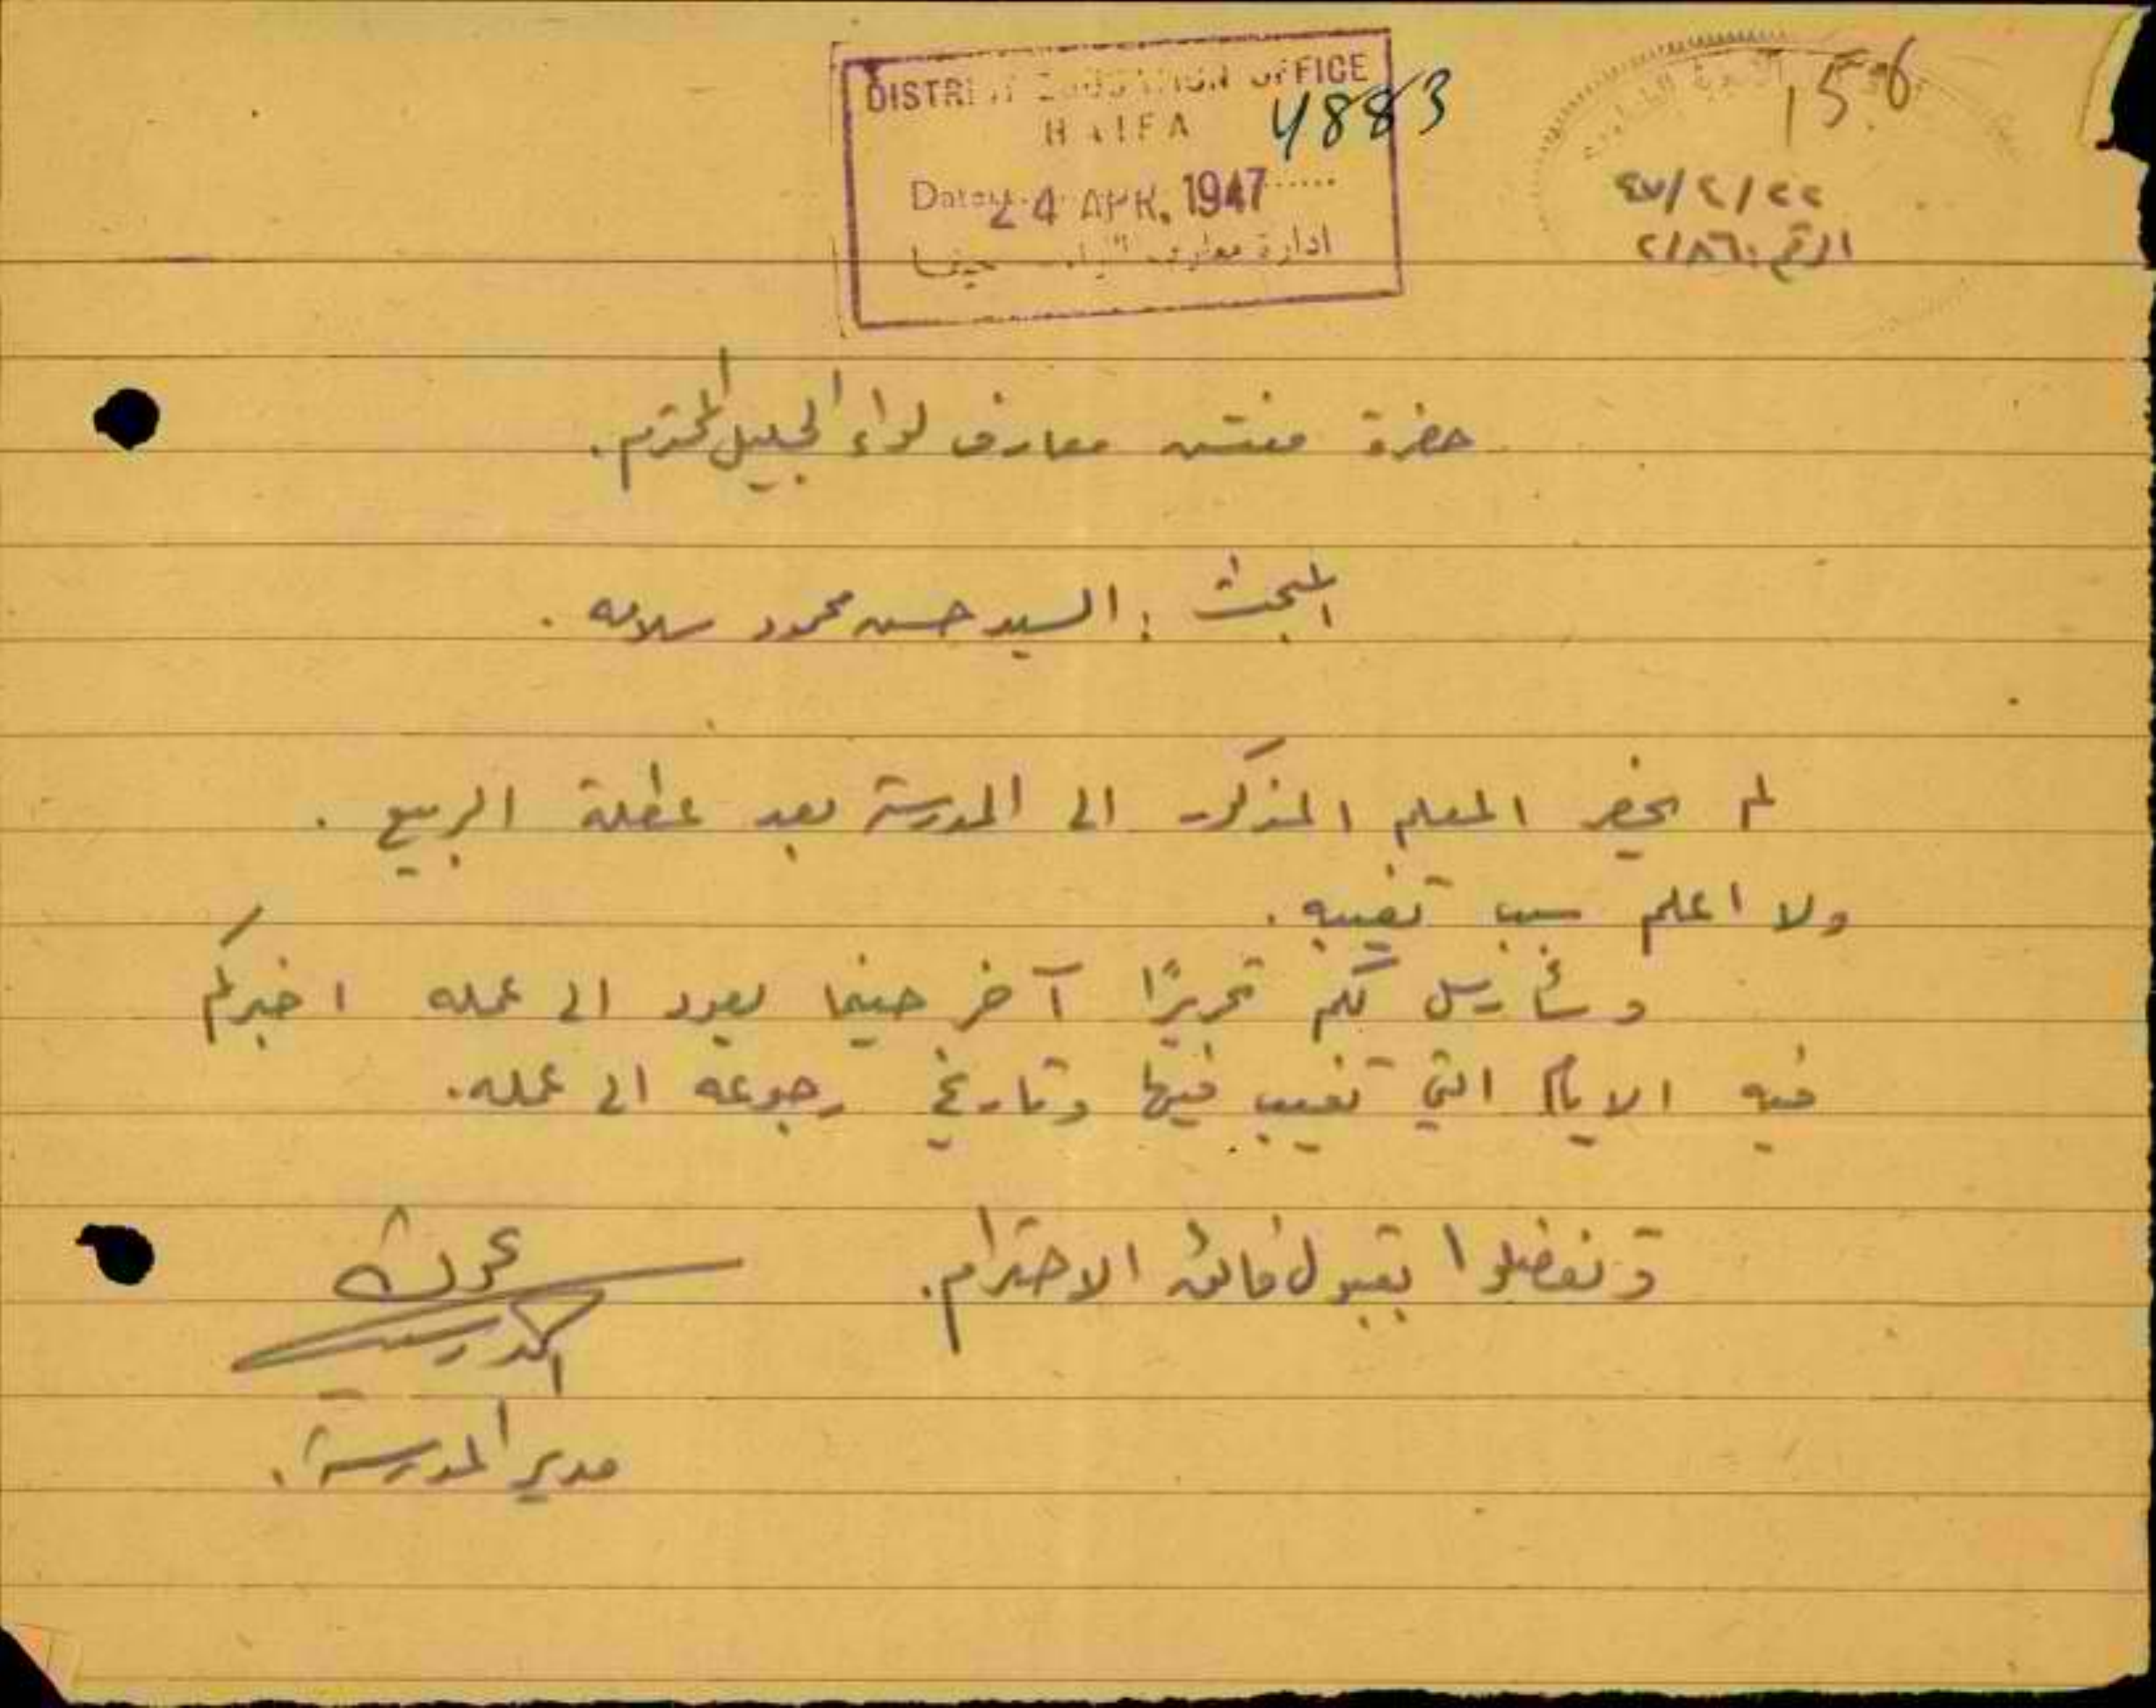 DISTRICT EDUCATION OFFICE
HAIFA
4883
Date 24 APR. 1947
ادارة معارف حيفا
156
٤٧/٤/٢٢
الرقم: ٢/٨٦
حضرة مفتش معارف لواء الجليل المحترم.
المبحث: السيد حسن محمود سلامه.
لم يحضر المعلم المذكور الى المدرسة بعد عطلة الربيع.
ولا اعلم سبب تغيبه.
وسأرسل لكم تحريرًا آخر حينما يعود الى عمله اخبركم
فيه الايام التي تغيب فيها وتاريخ رجوعه الى عمله.
وتفضلوا بقبول فائق الاحترام.
مدير المدرسة.